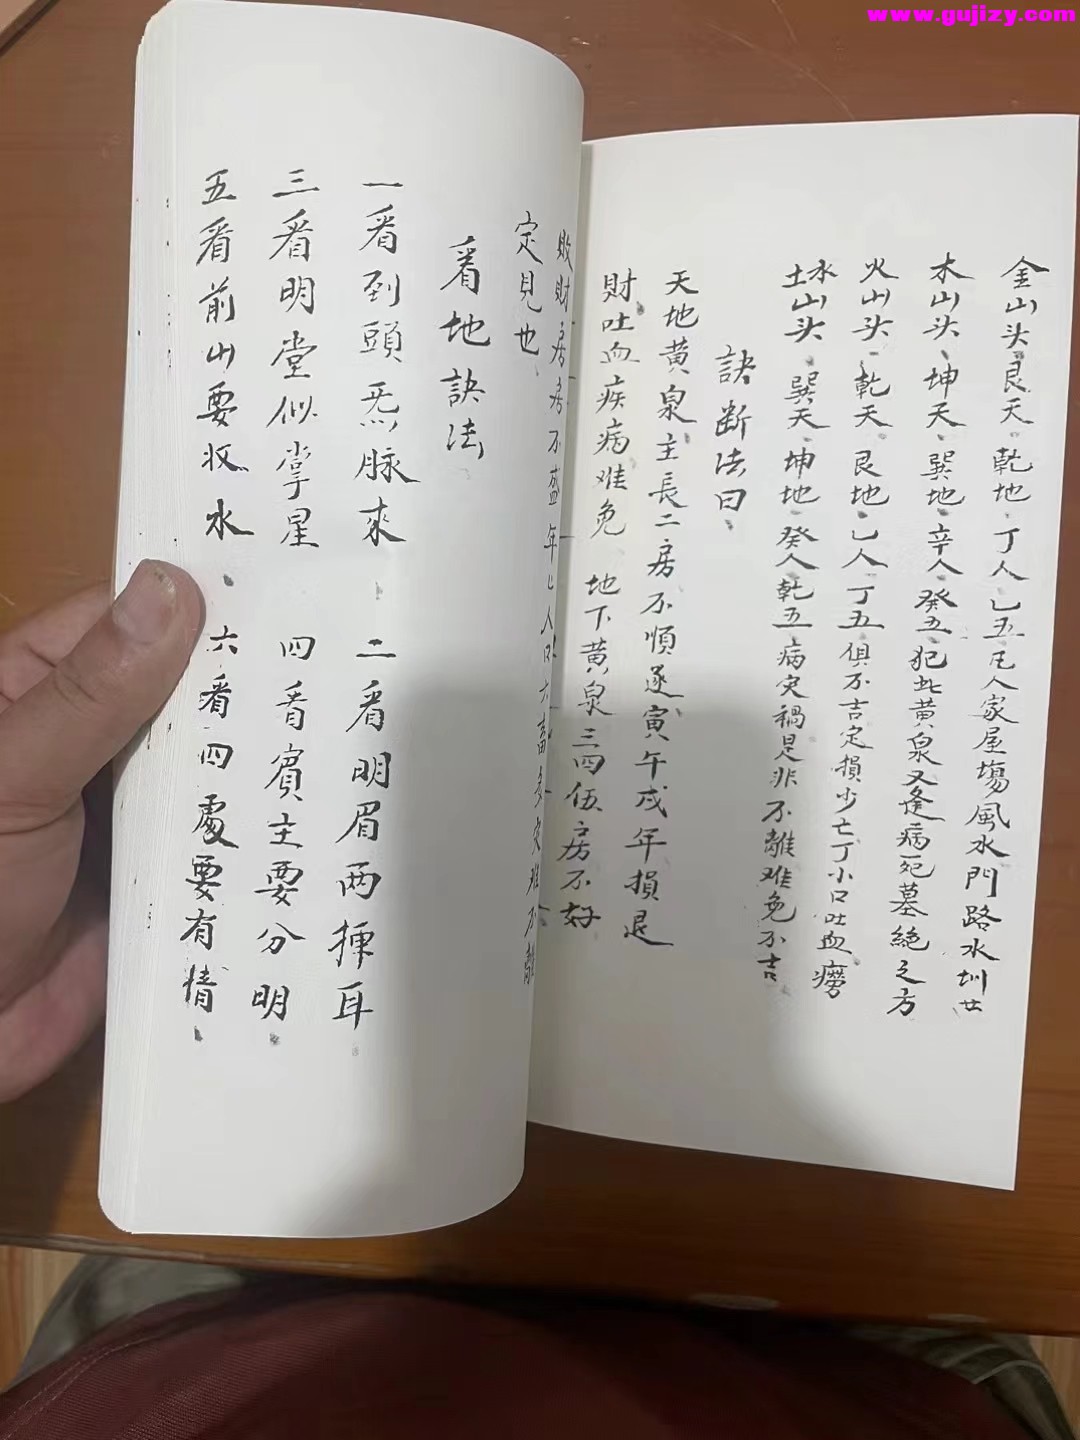 www.gujizy.com
金山头艮天乾地丁人乙五凡人家屋塲風水門路水圳廿
木山头坤天巽地辛人癸五犯此黄泉又逢病死墓絶之方
火山头乾天艮地乙人丁五俱不吉定損少亡丁小口吐血癆
水土山头巽天坤地癸人乾五病灾禍是非不離难免不吉
訣断法曰
天地黄泉主長二房不順逐寅午戌年損退
財吐血疾病难免 地下黄泉三四伍房不好
敗財房房不盛年人口六畜灾难不離
定見也
看地訣法
一看到頭炁脉來 二看明眉两揮耳
三看明堂似掌星 四看賓主要分明
五看前山要收水 六看四處要有情